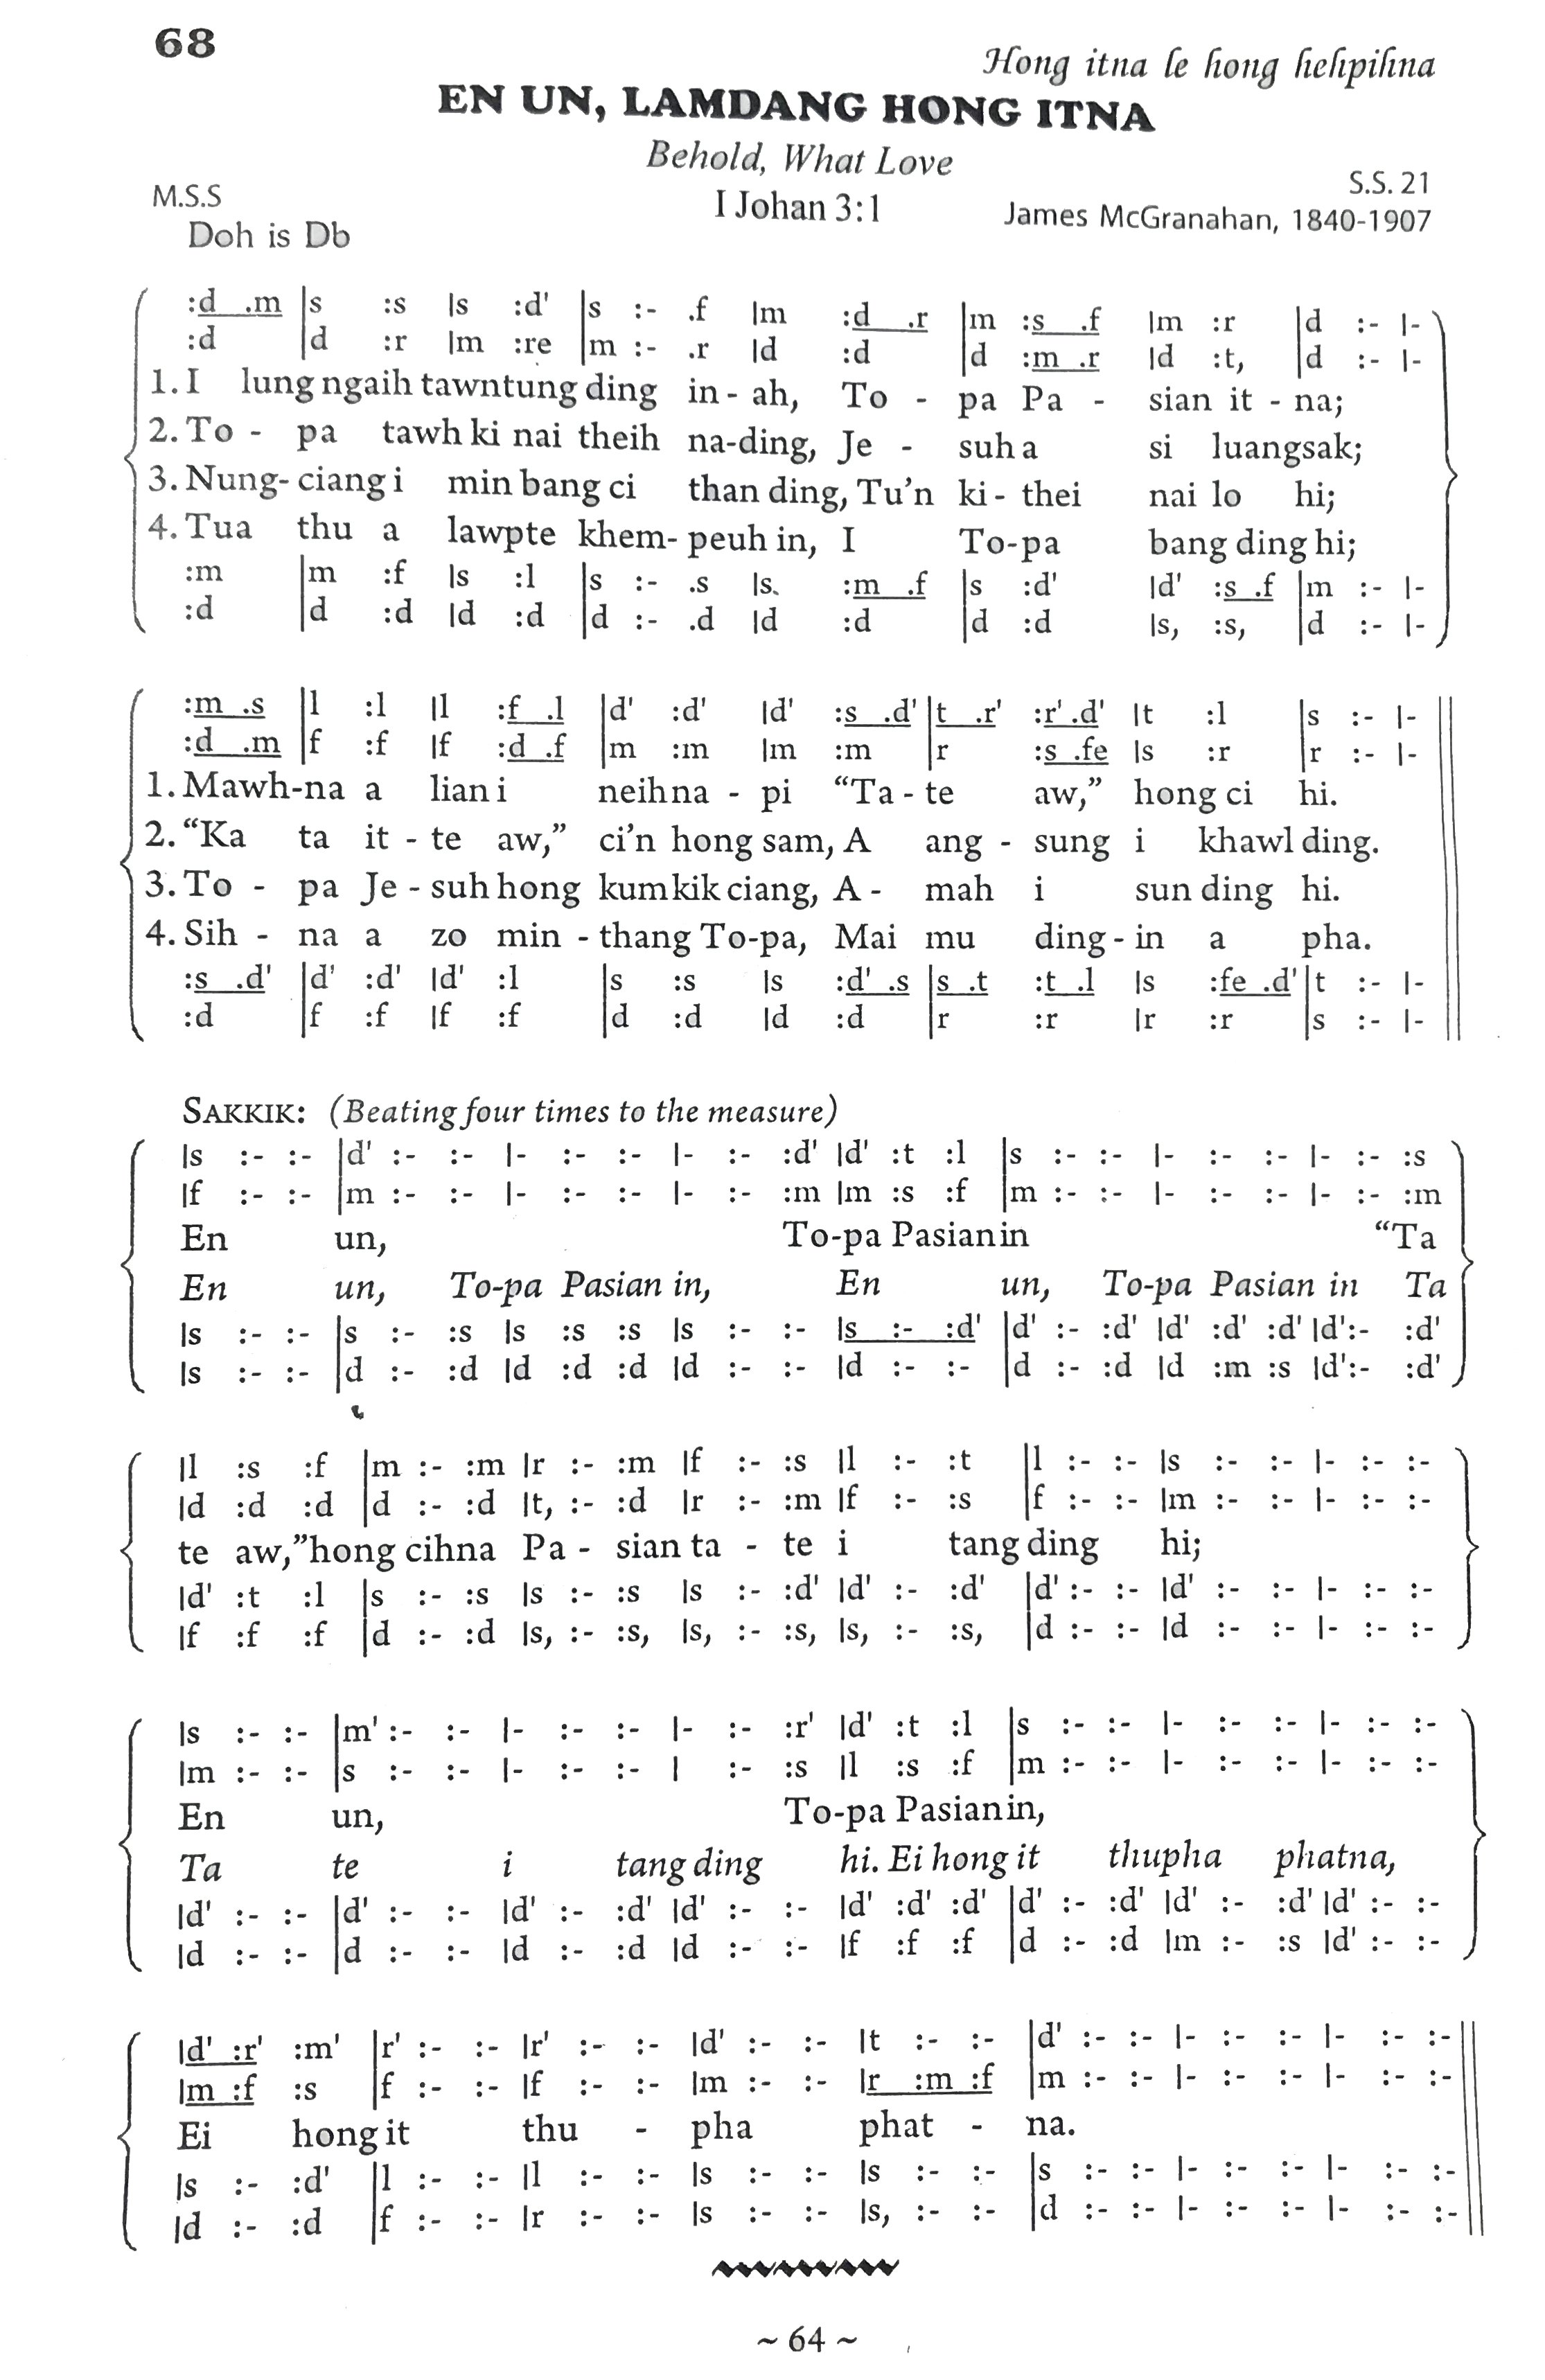 68
Hong itna le hong hehpihna
EN UN, LAMDANG HONG ITNA
Behold, What Love
M.S.S
I Johan 3:1
S.S. 21
Doh is Db
James McGranahan, 1840-1907
:d .m |s :s |s :d' |s :- .f |m :d .r |m :s .f |m :r |d :- |-
:d |d :r |m :re |m :- .r |d :d |d :m .r |d :t, |d :- |-
1. I lung ngaih tawntung ding in - ah, To - pa Pa - sian it - na;
2. To - pa tawh ki nai theih na-ding, Je - suh a si luangsak;
3. Nung- ciang i min bang ci than ding, Tu'n ki - thei nai lo hi;
4. Tua thu a lawpte khem- peuh in, I To-pa bang ding hi;
:m |m :f |s :l |s :- .s |s. :m .f |s :d' |d' :s .f |m :- |-
:d |d :d |d :d |d :- .d |d :d |d :d |s, :s, |d :- |-
:m .s |l :l |l :f .l |d' :d' |d' :s .d' |t .r' :r' .d' |t :l |s :- |-
:d .m |f :f |f :d .f |m :m |m :m |r :s .fe |s :r |r :- |-
1. Mawh-na a lian i neihna - pi “Ta - te aw,” hong ci hi.
2. “Ka ta it - te aw,” ci’n hong sam, A ang - sung i khawl ding.
3. To - pa Je - suh hong kumkik ciang, A - mah i sun ding hi.
4. Sih - na a zo min - thang To-pa, Mai mu ding - in a pha.
:s .d' |d' :d' |d' :l |s :s |s :d' .s |s .t :t .l |s :fe .d' |t :- |-
:d |f :f |f :f |d :d |d :d |r :r |r :r |s :- |-
SAKKIK: (Beating four times to the measure)
|s :- :- |d' :- :- |- :- :- |- :- :d' |d' :t :l |s :- :- |- :- :- |- :- :s
|f :- :- |m :- :- |- :- :- |- :- :m |m :s :f |m :- :- |- :- :- |- :- :m
En un, To-pa Pasian in “Ta
En un, To-pa Pasian in, En un, To-pa Pasian in Ta
|s :- :- |s :- :s |s :s :s |s :- :- |s :- :d' |d' :- :d' |d' :d' :d' |d' :- :d'
|s :- :- |d :- :d |d :d :d |d :- :- |d :- :- |d :- :d |d :m :s |d' :- :d'
|l :s :f |m :- :m |r :- :m |f :- :s |l :- :t |l :- :- |s :- :- |- :- :-
|d :d :d |d :- :d |t, :- :d |r :- :m |f :- :s |f :- :- |m :- :- |- :- :-
te aw,” hong cihna Pa - sian ta - te i tang ding hi;
|d' :t :l |s :- :s |s :- :s |s :- :d' |d' :- :d' |d' :- :- |d' :- :- |- :- :-
|f :f :f |d :- :d |s, :- :s, |s, :- :s, |s, :- :s, |d :- :- |d :- :- |- :- :-
|s :- :- |m' :- :- |- :- :- |- :- :r' |d' :t :l |s :- :- |- :- :- |- :- :-
|m :- :- |s :- :- |- :- :- | :- :s |l :s :f |m :- :- |- :- :- |- :- :-
En un, To-pa Pasian in,
Ta te i tang ding hi. Ei hong it thupha phatna,
|d' :- :- |d' :- :- |d' :- :d' |d' :- :- |d' :d' :d' |d' :- :d' |d' :- :d' |d' :- :-
|d :- :- |d :- :- |d :- :d |d :- :- |f :f :f |d :- :d |m :- :s |d' :- :-
|d' :r' :m' |r' :- :- |r' :- :- |d' :- :- |t :- :- |d' :- :- |- :- :- |- :- :-
|m :f :s |f :- :- |f :- :- |m :- :- |r :m :f |m :- :- |- :- :- |- :- :-
Ei hong it thu - pha phat - na.
|s :- :d' |l :- :- |l :- :- |s :- :- |s :- :- |s :- :- |- :- :- |- :- :-
|d :- :d |f :- :- |r :- :- |s :- :- |s, :- :- |d :- :- |- :- :- |- :- :-
~ 64 ~